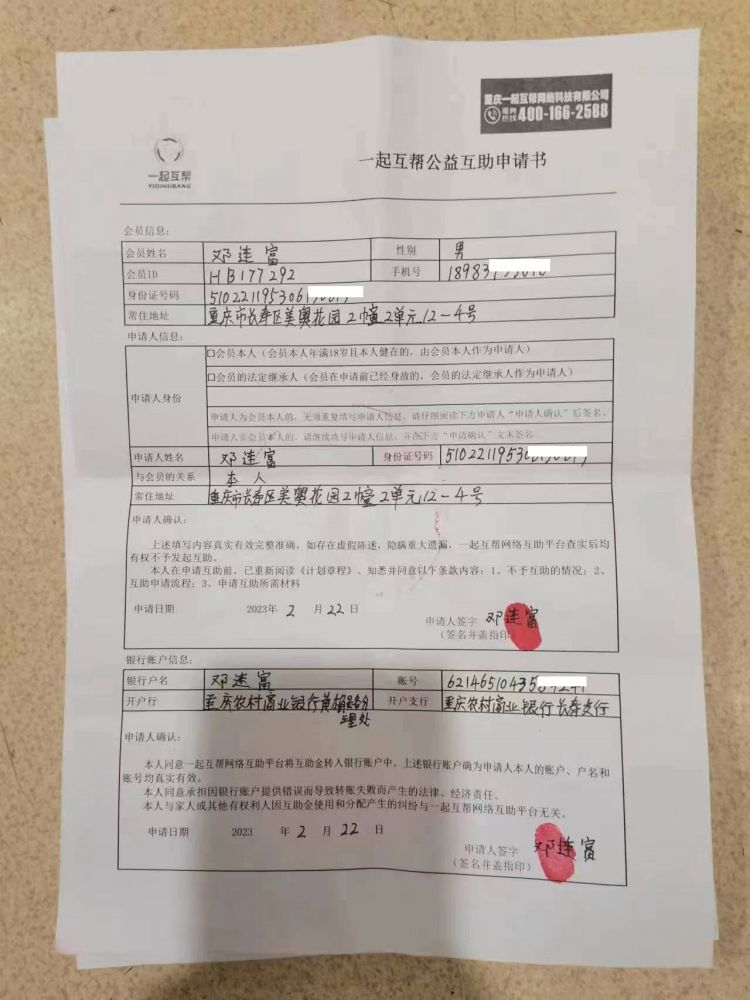 重庆一起互帮网络科技有限公司
服务热线 400-166-2588
一起互帮
YIQIHUBANG
一起互帮公益互助申请书
会员信息:
会员姓名 邓连富 性别 男
会员ID HB177292 手机号 18983
身份证号码 5102211953061
常住地址 重庆市长寿区美奥花园2幢2单元12-4号
申请人信息:
申请人身份
□会员本人(会员本人年满18岁且本人健在的,由会员本人作为申请人)
□会员的法定继承人(会员在申请前已经身故的,会员的法定继承人作为申请人)
申请人为会员本人的,无须重复填写申请人信息,请仔细阅读下方申请人“申请人确认”后签名。
申请人非会员本人的,请继续填写申请人信息,并在下方“申请确认”文末签名
申请人姓名 邓连富 身份证号码 510221195306
与会员的关系 本人
常住地址 重庆市长寿区美奥花园2幢2单元12-4号
申请人确认:
上述填写内容真实有效完整准确,如存在虚假陈述,隐瞒重大遗漏,一起互帮网络互助平台查实后均
有权不予发起互助。
本人在申请互助前,已重新阅读《计划章程》、知悉并同意以下条款内容:1、不予互助的情况;2、
互助申请流程;3、申请互助所需材料
申请日期 2023年 2 月 22 日
申请人签字 邓连富
(签名并盖指印)
银行账户信息:
银行户名 邓连富 账号 62146510435
开户行 重庆农村商业银行黄桷分理处 开户支行 重庆农村商业银行长寿支行
申请人确认:
本人同意一起互帮网络互助平台将互助金转入银行账户中,上述银行账户确为申请人本人的账户、户名和
账号均真实有效。
本人同意承担因银行账户提供错误而导致转账失败而产生的法律、经济责任。
本人与家人或其他有权利人因互助金使用和分配产生的纠纷与一起互帮网络互助平台无关。
申请日期 2023 年 2 月 22 日
申请人签字 邓连富
(签名并盖指印)